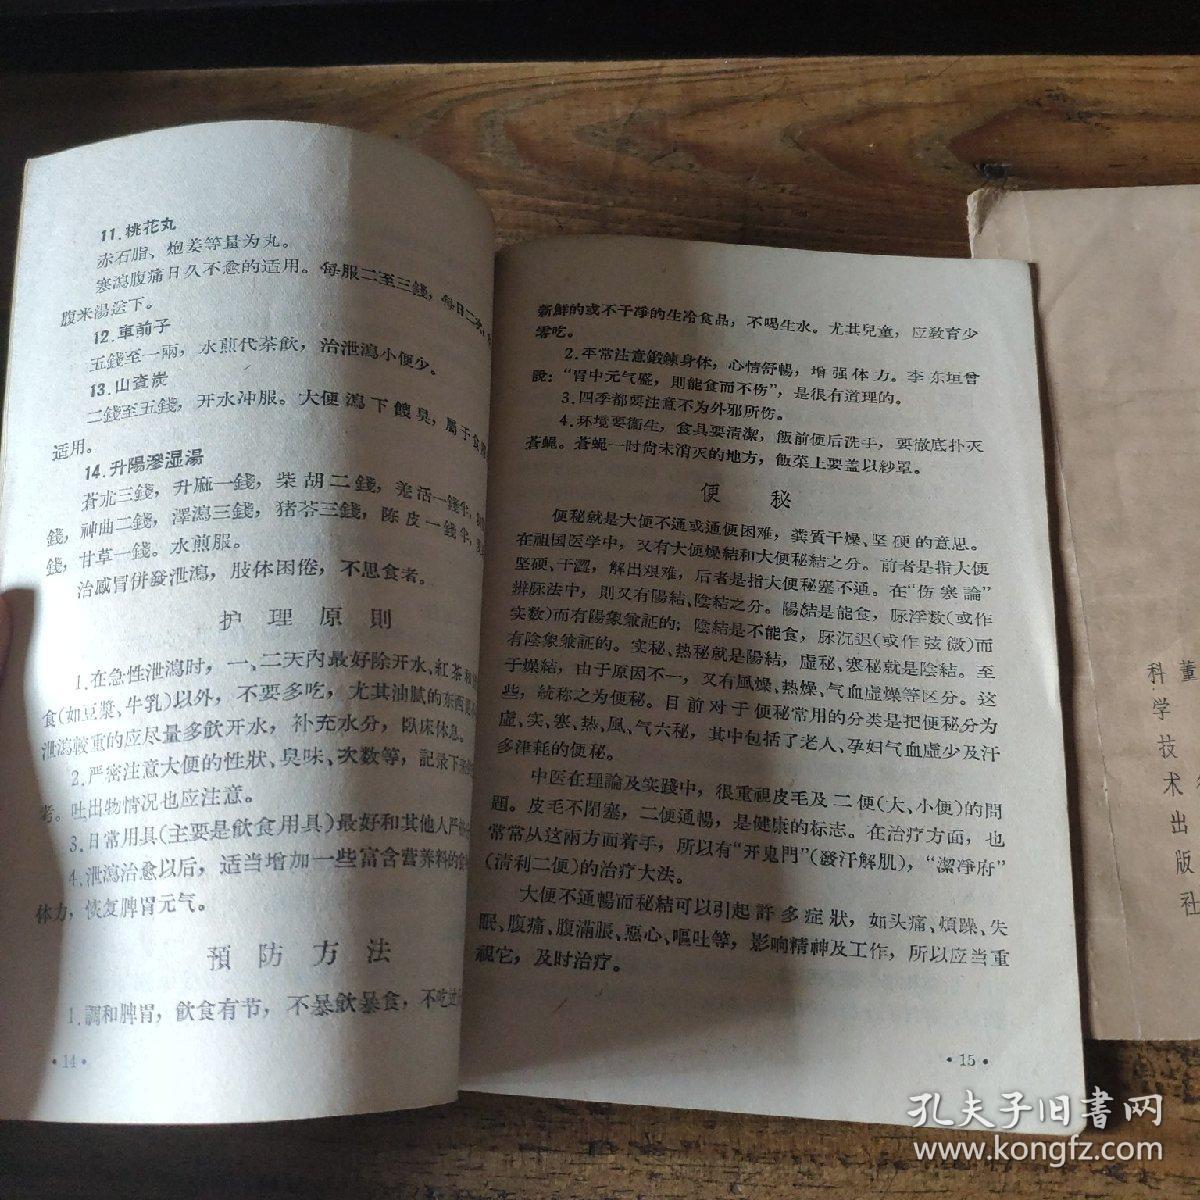 11.桃花丸
赤石脂、炮姜等量为丸。
寒瀉腹痛日久不愈的适用。每服二至三錢，每日二次，
腹米湯送下。
12.車前子
五錢至一兩，水煎代茶飲，治泄瀉小便少。
13.山査炭
二錢至五錢，开水冲服。大便瀉下餿臭，屬于食
适用。
14.升陽滲湿湯
蒼朮三錢，升麻一錢，柴胡二錢，羌活一錢半，
錢，神曲二錢，澤瀉三錢，猪苓三錢，陈皮一錢半，
錢，甘草一錢。水煎服。
治感冒併發泄瀉，肢体困倦，不思食者。
护理原則
1.在急性泄瀉时，一、二天內最好除开水、紅茶和
食(如豆漿、牛乳)以外，不要多吃，尤其油膩的东西
泄瀉較重的应尽量多飲开水，补充水分，臥床休息。
2.严密注意大便的性狀、臭味、次数等，記录下来
考。吐出物情况也应注意。
3.日常用具(主要是飲食用具)最好和其他人严
4.泄瀉治愈以后，适当增加一些富含营养料的食
体力，恢复脾胃元气。
預防方法
1.調和脾胃，飲食有节，不暴飲暴食，不吃过
·14·
新鮮的或不干凈的生冷食品，不喝生水。尤其兒童，应教育少
零吃。
2.平常注意鍛鍊身体，心情舒暢，增强体力。李东垣曾
說：“胃中元气盛，則能食而不伤”，是很有道理的。
3.四季都要注意不为外邪所伤。
4.环境要衞生，食具要清潔，飯前便后洗手，要徹底扑灭
蒼蝇。蒼蝇一时尙未消灭的地方，飯菜上要盖以紗罩。
便秘
便秘就是大便不通或通便困难，粪質干燥、坚硬的意思。
在祖国医学中，又有大便燥結和大便秘結之分。前者是指大便
坚硬、干澀，解出艰难，后者是指大便秘塞不通。在“伤寒論”
辨脈法中，則又有陽結、陰結之分。陽結是能食，脈浮数(或作
实数)而有陽象兼証的；陰結是不能食，脈沉迟(或作弦微)而
有陰象兼証的。实秘、热秘就是陽結，虛秘、寒秘就是陰結。至
于燥結，由于原因不一，又有風燥、热燥、气血虛燥等区分。这
些，統称之为便秘。目前对于便秘常用的分类是把便秘分为
虛、实、寒、热、風、气六秘，其中包括了老人、孕妇气血虛少及汗
多津耗的便秘。
中医在理論及实踐中，很重視皮毛及二便(大、小便)的問
題。皮毛不閉塞，二便通暢，是健康的标志。在治疗方面，也
常常从这兩方面着手，所以有“开鬼門”(發汗解肌)，“潔凈府”
(清利二便)的治疗大法。
大便不通暢而秘結可以引起許多症狀，如头痛、煩躁、失
眠、腹痛、腹滿脹、惡心、嘔吐等，影响精神及工作，所以应当重
視它，及时治疗。
·15·
董
科学技术出版社
孔夫子旧書网
www.kongfz.com